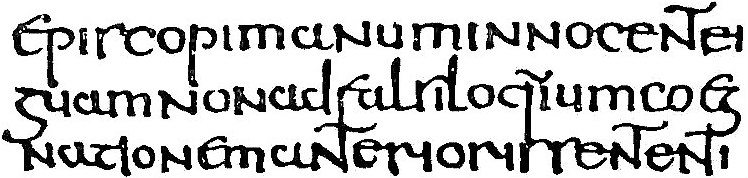 episcopimanuminnocentei
guamnonadfalsiloq̄iumcoeg
nationemanteriorissententi